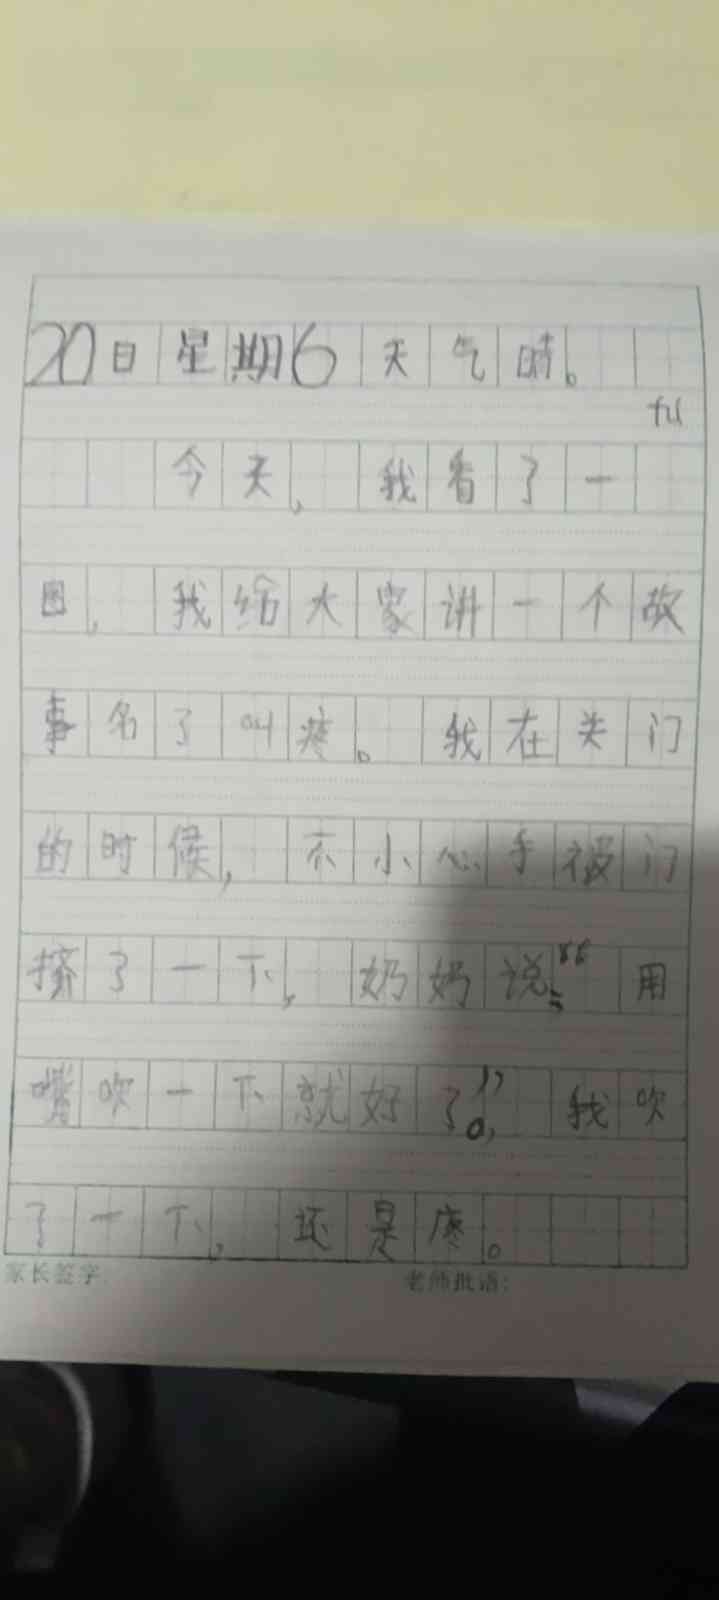 20日星期6天气晴。
fu
今天,我看了一
图,我给大家讲一个故
事名了叫疼。我在关门
的时候,不小心手被门
挤了一下,奶奶说:“用
嘴吹一下就好了。”,我吹
了一下,还是疼。
家长签字:
老师批语: